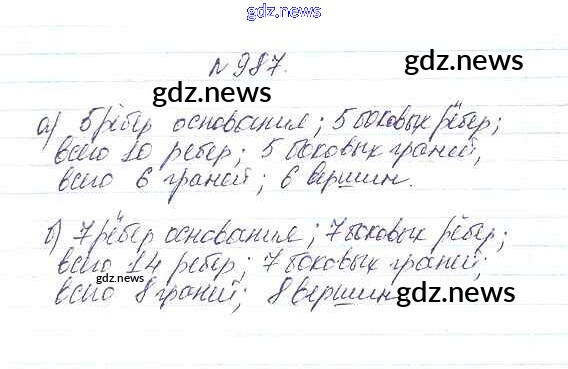 gdz.news
№987.
gdz.news
gdz.news
а) 5 рёбер основания; 5 боковых рёбер;
всего 10 ребер; 5 боковых граней,
всего 6 граней; 6 вершин.
б) 7 рёбер основания; 7 боковых рёбер;
всего 14 ребер; 7 боковых граней;
gdz.news
всего 8 граней; 8 вершин
gdz.news